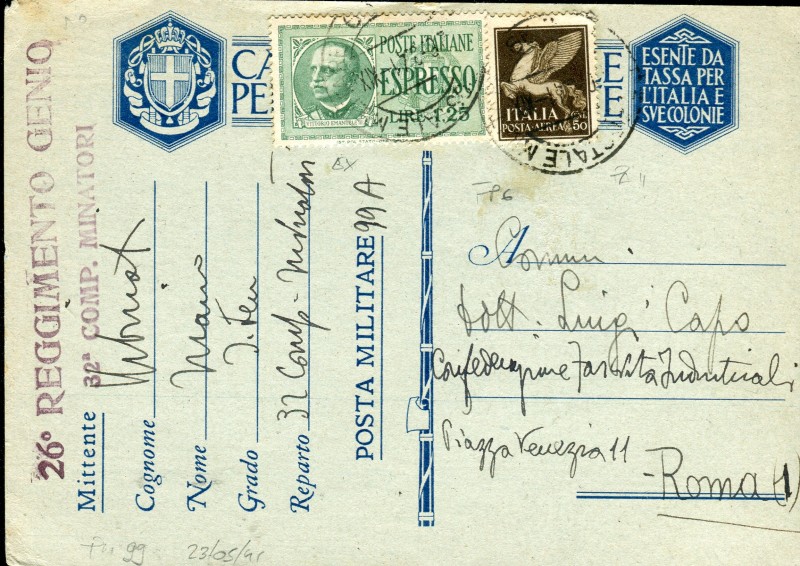 26º REGGIMENTO GENIO
32ª COMP. MINATORI
Mittente
Cognome
Nome Mario
Grado S. Ten
Reparto 32 Comp. Minatori
POSTA MILITARE 99 A
CA
PE
E
E
POSTE ITALIANE
ESPRESSO
LIRE 1.25
VITTORIO EMANUELE
ITALIA
POSTA AEREA 50
ESENTE DA
TASSA PER
L'ITALIA E
SVE COLONIE
A
dott. Luigi Capo
Confederazione Fascista Industriali
Piazza Venezia 11
Roma (1)
99 23/05/41